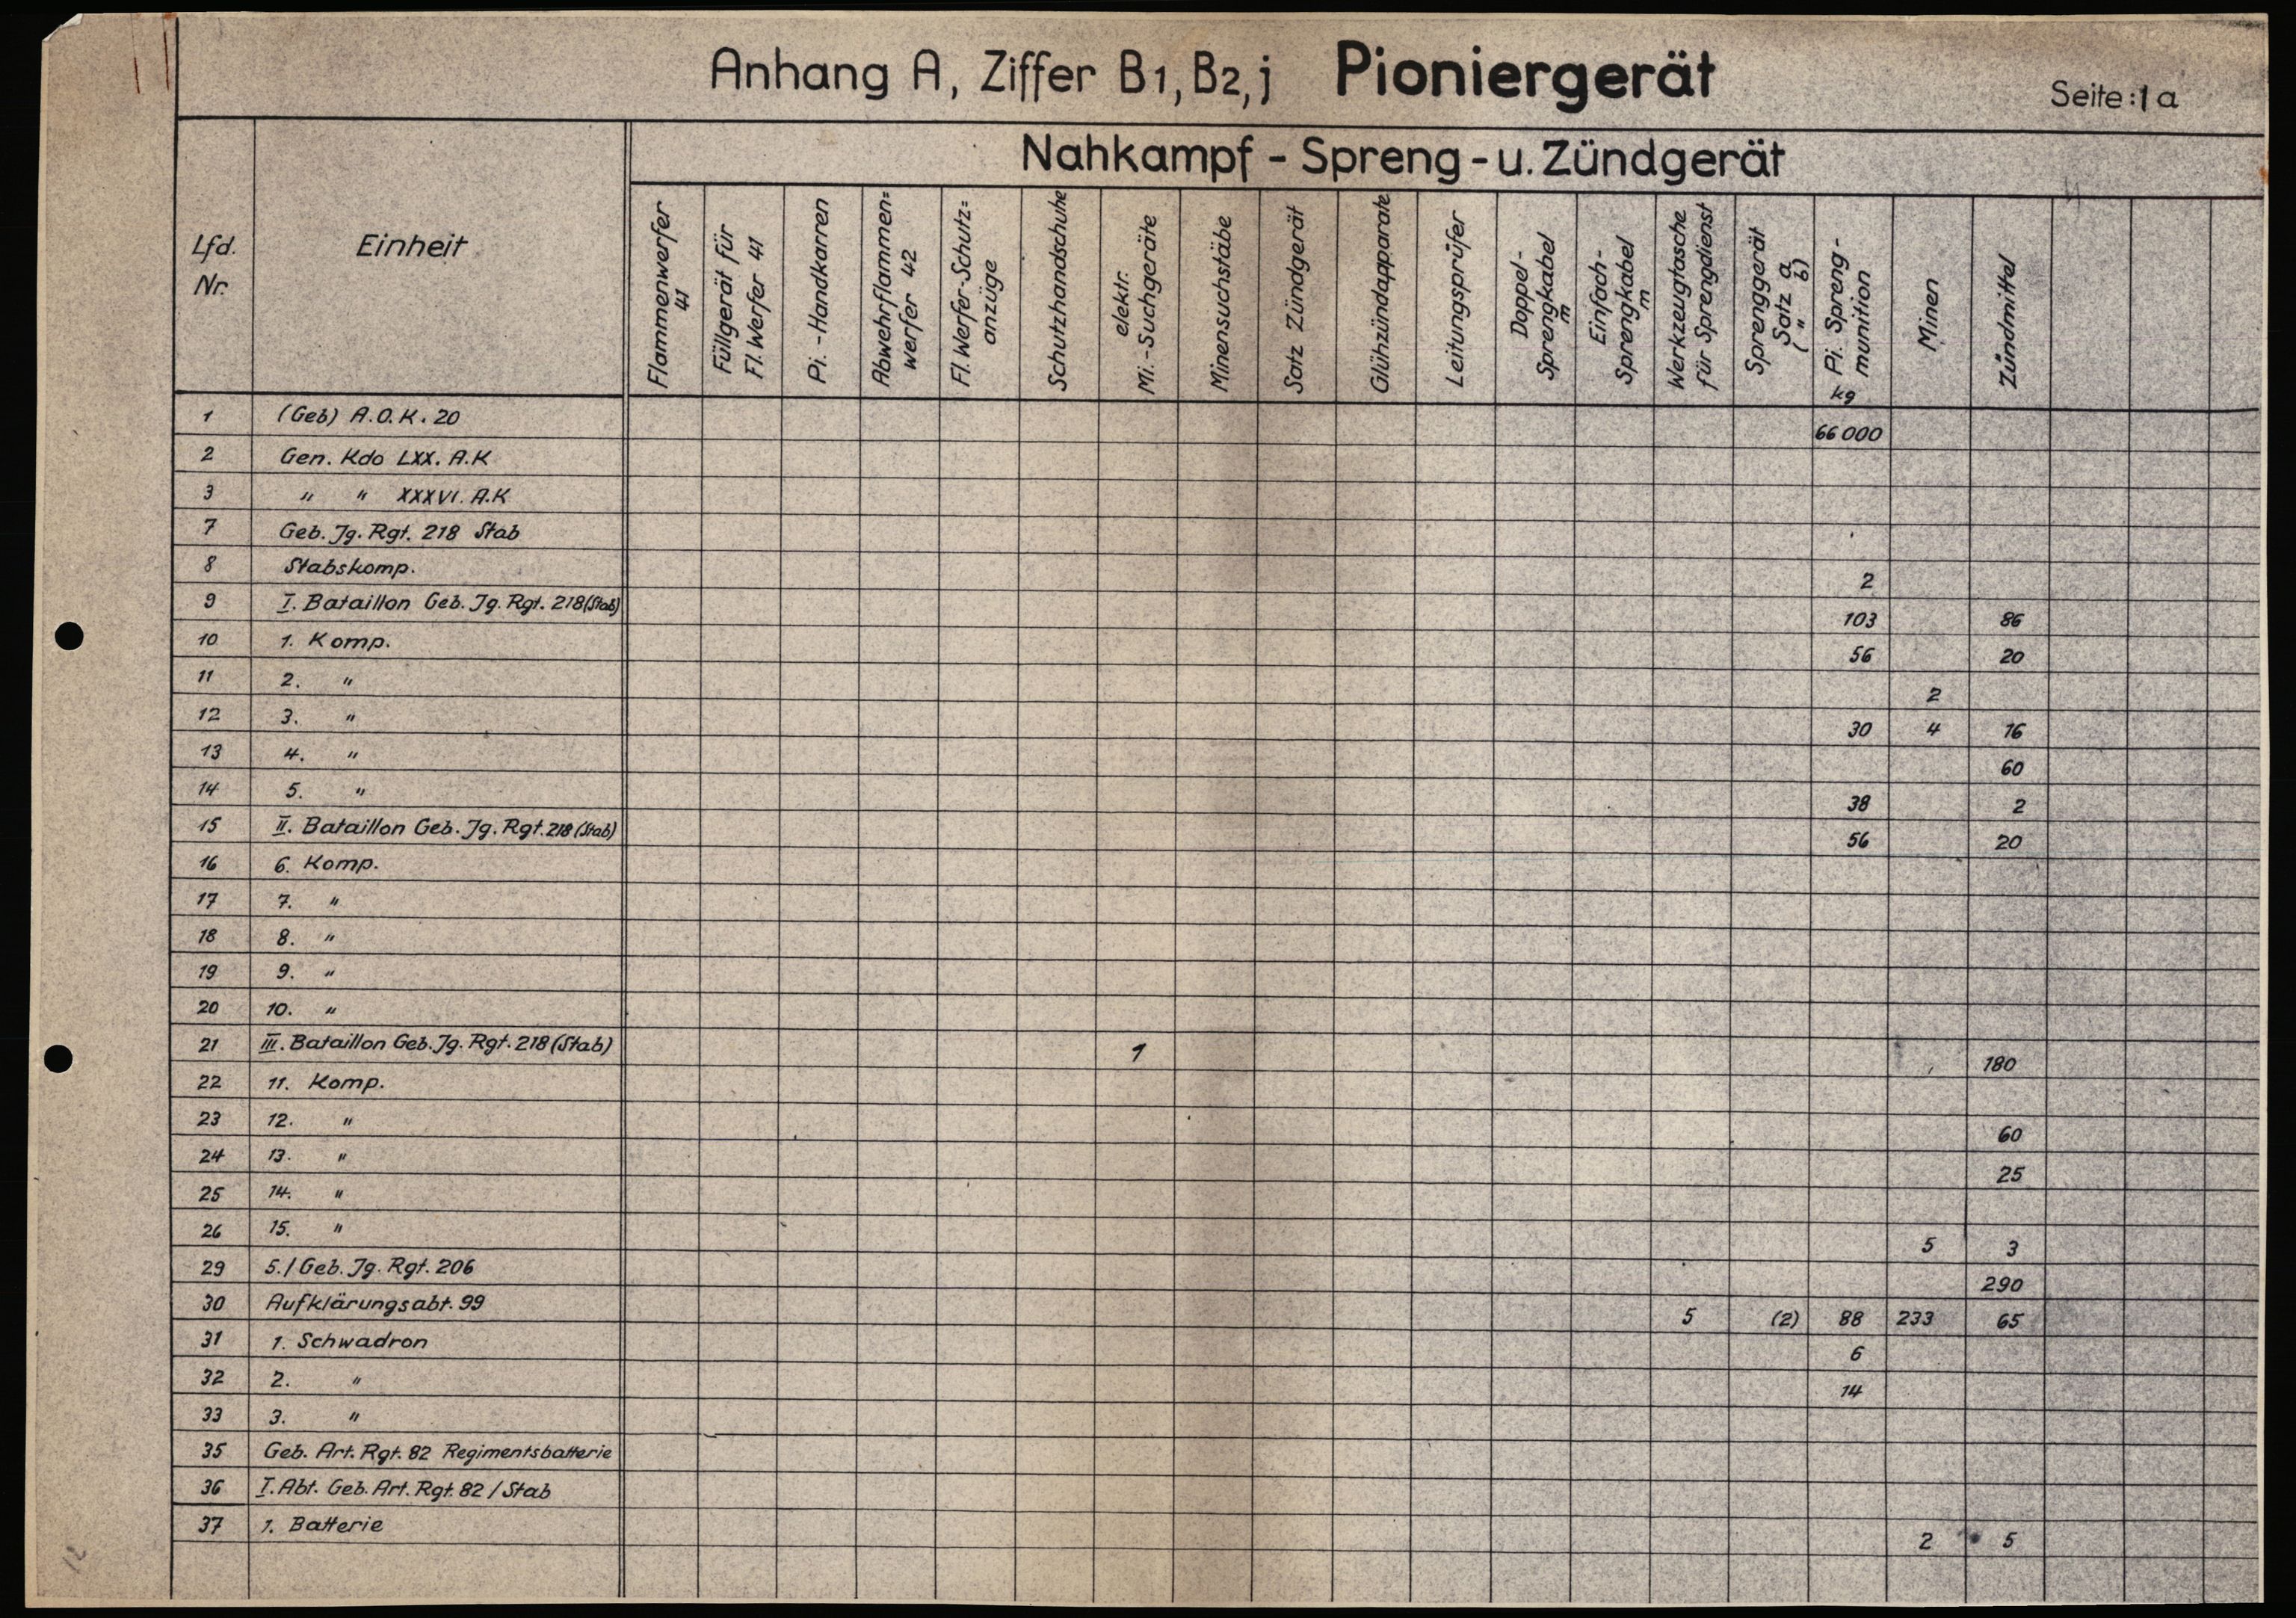 Anhang A, Ziffer B1, B2, j Pioniergerät Seite: 1 a
Nahkampf - Spreng - u. Zündgerät
Lfd. Nr. Einheit
Flammenwerfer 41
Füllgerät für Fl. Werfer 41
Pi. - Handkarren
Abwehrflammen= werfer 42
Fl. Werfer-Schutz= anzüge
Schutzhandschuhe
elektr. Mi. - Suchgeräte
Minensuchstäbe
Satz Zündgerät
Glühzündapparate
Leitungsprüfer
Doppel- Sprengkabel m
Einfach- Sprengkabel m
Werkzeugtasche für Sprengdienst
Sprenggerät Satz a ( " b)
Pi. Spreng- munition kg
Minen
Zündmittel
1 (Geb) A.O.K. 20 66 000
2 Gen. Kdo LXX. A.K
3 " " XXXVI. A.K
7 Geb. Jg. Rgt. 218 Stab
8 Stabskomp. 2
9 I. Bataillon Geb. Jg. Rgt. 218 (Stab) 103 86
10 1. Komp. 56 20
11 2. " 2
12 3. " 30 4 16
13 4. " 60
14 5. " 38 2
15 II. Bataillon Geb. Jg. Rgt. 218 (Stab) 56 20
16 6. Komp.
17 7. "
18 8. "
19 9. "
20 10. "
21 III. Bataillon Geb. Jg. Rgt. 218 (Stab) 1 180
22 11. Komp.
23 12. " 60
24 13. " 25
25 14. "
26 15. " 5 3
29 5./Geb. Jg. Rgt. 206 290
30 Aufklärungsabt. 99 5 (2) 88 233 65
31 1. Schwadron 6
32 2. " 14
33 3. "
35 Geb. Art. Rgt. 82 Regimentsbatterie
36 I. Abt. Geb. Art. Rgt. 82 / Stab
37 1. Batterie 2 5
12